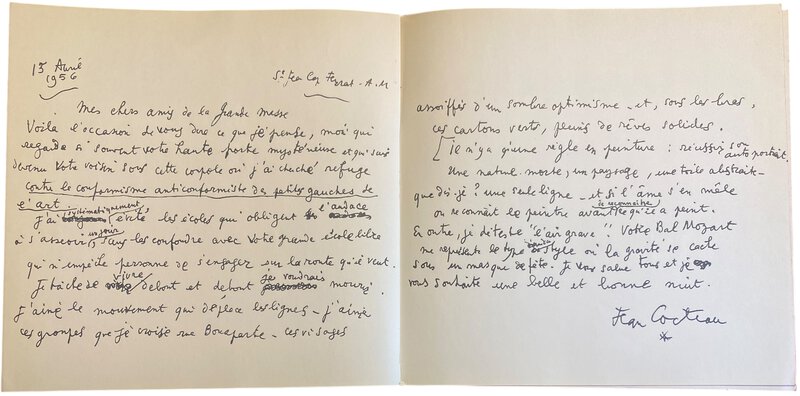 15 Avril
1956
St Jean Cap Ferrat - A.M
Mes chers amis de la Grande Masse
Voila l'occasion de vous dire ce que je pense, moi qui
regarde si souvent votre haute porte mystérieuse et qui suis
devenu votre voisin sous cette coupole où j'ai cherché refuge
contre le conformisme anticonformiste des petites gauches de
l'art.
J'ai systématiquement évité les écoles qui obligent l'audace
à s'asseoir, un jour, sans les confondre avec votre grande école libre
qui n'empêche personne de s'engager sur la route qu'il veut.
Je tâche de vivre debout et debout je voudrais mourir.
J'aime le mouvement qui déplace les lignes - j'aime
ces groupes que je croise rue Bonaparte - ces visages
assoiffés d'un sombre optimisme - et, sous les bras,
ces cartons verts, pleins de rêves solides.
Il n'y a qu'une règle en peinture : réussir son autoportrait.
Une nature morte, un paysage, une toile abstraite -
que dis-je ? une seule ligne - et si l'âme s'en mêle
on reconnaît le peintre avant de reconnaître ce qu'il a peint.
En outre, je déteste "l'air grave". Votre Bal Mozart
me représente le type du style où la gravité se cache
sous un masque de fête. Je vous salue tous et je
vous souhaite une belle et bonne nuit.
Jean Cocteau